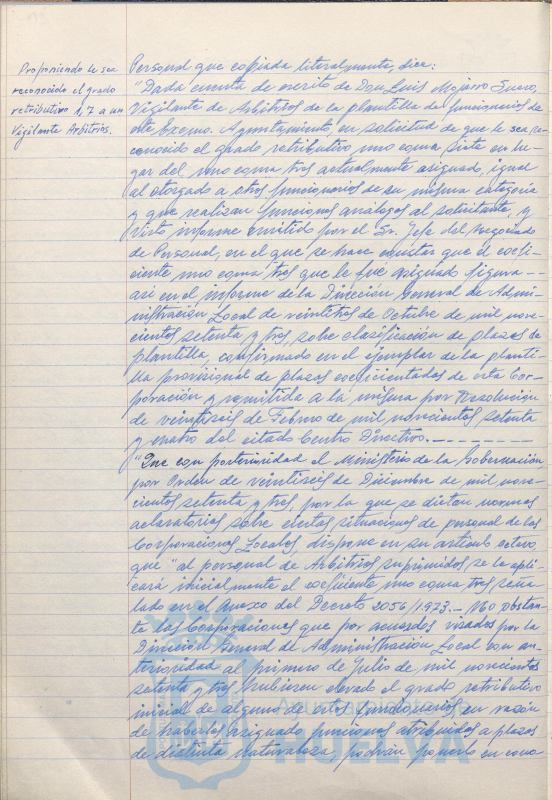 Proponiendo le sea
reconocido el grado
retributivo 1,7 a un
Vigilante Arbitrios.
Personal que copiada literalmente, dice:
"Dada cuenta de escrito de Don Luis Mojarro Suero,
Vigilante de Arbitrios de la plantilla de funcionarios de
este Excmo. Ayuntamiento, en solicitud de que le sea re-
conocido el grado retributivo uno coma siete en lu-
gar del uno coma tres actualmente asignado, igual
al otorgado a otros funcionarios de su misma categoría
y que realizan funciones análogas al solicitante, y
visto informe emitido por el Sr. Jefe del Negociado
de Personal, en el que se hace constar que el coefi-
ciente uno coma tres que le fue asignado figura --
así en el informe de la Dirección General de Admi-
nistración Local de veintitres de Octubre de mil nove-
cientos setenta y tres, sobre clasificación de plazas de
plantilla, confirmado en el ejemplar de la planti-
lla provisional de plazas coeficientadas de esta Cor-
poración y remitida a la misma por Resolución
de veintiseis de Febrero de mil novecientos setenta
y cuatro del citado Centro Directivo. - - - - - - - -
"Que con posterioridad el Ministerio de la Gobernación,
por Orden de veintiseis de Diciembre de mil nove-
cientos setenta y tres, por la que se dictan normas
aclaratorias sobre ciertas situaciones de personal de las
Corporaciones Locales, dispone en su artículo octavo,
que "al personal de Arbitrios suprimidos se le apli-
cará inicialmente el coeficiente uno coma tres seña-
lado en el Anexo del Decreto 2056/1.973.- No obstan-
te las Corporaciones que por acuerdos visados por la
Dirección General de Administración Local con an-
terioridad al primero de Julio de mil novecientos
setenta y tres hubiesen elevado el grado retributivo
inicial de alguno de estos funcionarios en razón
de haberles asignado funciones atribuidas a plazas
de distinta naturaleza, podrán ponerlo en cono
Ayuntamiento de
HUELVA